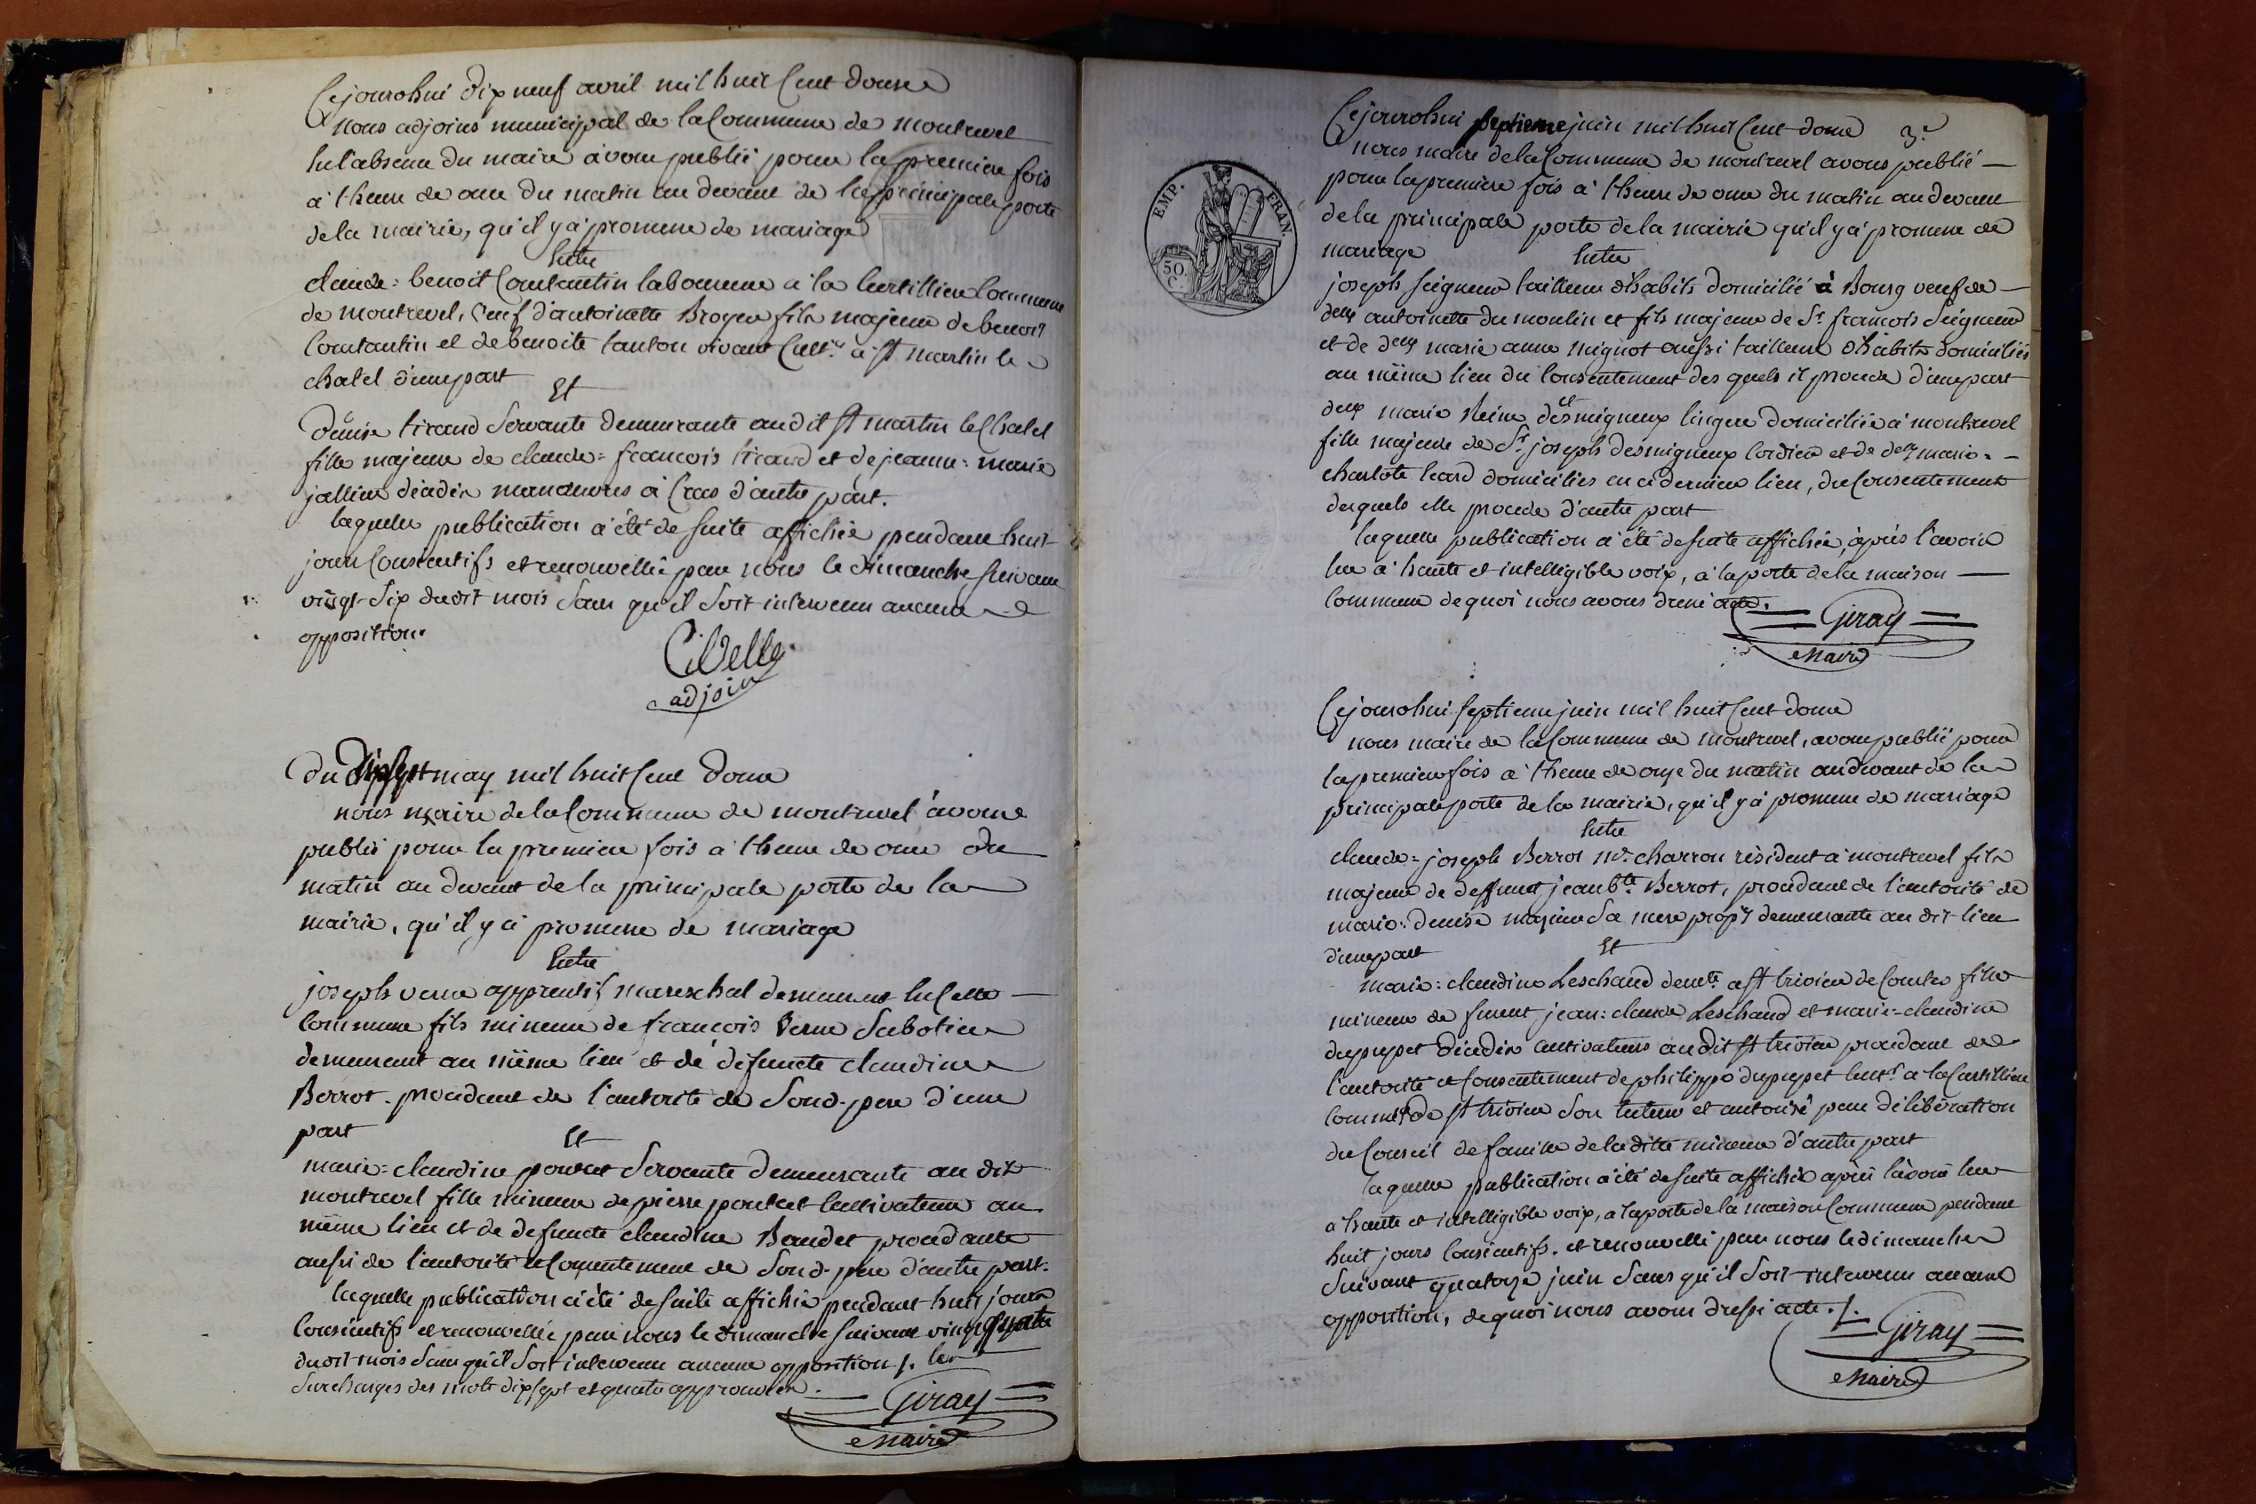 Cejourdhui dix neuf avril mil huit Cent douze
Nous adjoins municipal de la Commune de montrevel
En l'absence du maire avons publié pour la premiere fois
à l'heure de onze du matin au devant de la principale porte
de la mairie, qu'il y a promesse de mariage
Entre
claude = benoit Constantin laboureur a la Curtilliere Commune
de montrevel, Veuf d'antoinette Broyer fils majeur de benoit
Constantin et de benoite tanton vivant Cult.rs à St martin le
chatel d'une part
Et
Denise tirand Servante demeurante audit St martin le Chatel
fille majeure de claude = francois tirand et de jeanne = marie
jallier décédés manœuvres à Cras d'autre part.
laquelle publication a été de suite affichée pendant huit
jours Consécutifs et renouvellée par nous le dimanche suivant
vingt-six dudit mois sans qu'il soit intervenu aucune
opposition.
Civelle
adjoin
Du dixsept may mil huit Cent douze
nous maire de la Commune de montrevel avons
publié pour la premiere fois a l'heure de onze du
matin au devant de la principale porte de la
mairie, qu'il y a promesse de mariage
Entre
joseph verne apprentif mareschal demeurant En Cette
Commune fils mineur de francois Verne Sabotier
demeurant au même lieu et de défuncte claudine
Berrot. procédant de l'autorité de Sond. pere d'une
part
Et
marie = claudine poncet Servante demeurante au dit
montrevel fille mineure de pierre poncet Cultivateur au
même lieu et de defuncte claudine Baudet procédante
aussi de l'autorité et Consentement de Sond. pere d'autre part.
laquelle publication a été de suite affichée pendant huit jours
Consécutifs et renouvellée par nous le dimanche suivant vingt quatre
dudit mois sans qu'il soit intervenu aucune opposition ./. les
Surcharges des mots dixsept et quatre approuvées.
Giray
Maire
3e
Cejourdhui septieme juin mil huit Cent douze
nous maire de la Commune de montrevel avons publié
pour la premiere fois à l'heure de onze du matin au devant
de la principale porte de la mairie qu'il y a promesse de
mariage
Entre
joseph Seigneur tailleur d'habits domicilié à Bourg veuf de
delle antoinette du moulin et fils majeur de Sr. françois Seigneur
et de delle marie anne mignot aussi tailleur d'habits domiciliés
au même lieu du Consentement des quels il procede d'une part
et
delle marie Reine desmigneux lingere domiciliée a montrevel
fille majeure de Sr. joseph desmigneux Cordier et de delle marie =
charlote leard domiciliés en ce dernier lieu, du Consentement
desquels elle procede d'autre part
laquelle publication a été de suite affichée, après l'avoir
lue à haute et intelligible voix, à la porte de la maison
Commune de quoi nous avons dressé acte.
Giray
Maire
EMP. FRAN.
50 C.
Cejourdhui septieme juin mil huit Cent douze
nous maire de la Commune de montrevel, avons publié pour
la premiere fois a l'heure de onze du matin au devant de la
principale porte de la mairie, qu'il y a promesse de mariage
Entre
claude = joseph Berrot md. charron résident a montrevel fils
majeur de deffunt jean bte. Berrot, procédant de l'autorité de
marie = denise sa mere demeurante au dit lieu
d'une part
Et
marie = claudine Leschaud demte. a St trivier de Courtes fille
mineure de furent jean = claude Leschaud et marie = claudine
dupupet décédés Cultivateurs audit St trivier procédant de
l'autorité et Consentement de philippe dupupet Cult.r a la Curtilliere
Comme. de St trivier Son tuteur et autorisé par délibération
du Conseil de famille de la ditte mineure d'autre part
laquelle publication a été de suite affichée après l'avoir lue
a haute et intelligible voix, a la porte de la maison Commune pendant
huit jours Consécutifs. et renouvellé par nous le dimanche
Suivant quatorze juin Sans qu'il Soit intervenu aucune
opposition, de quoi nous avons dressé acte ./.
Giray
Maire